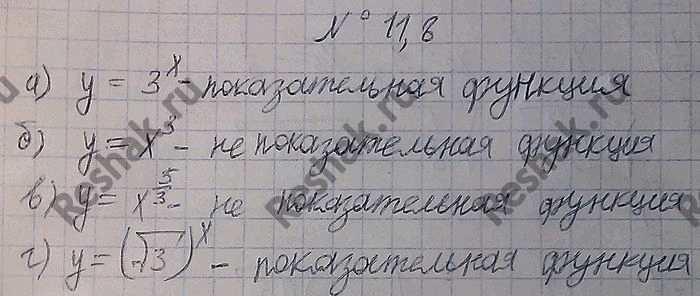 № 11,8
а) y = 3^x - показательная функция
б) y = x^3 - не показательная функция
в) y = x^(5/3) - не показательная функция
г) y = (√3)^x - показательная функция
Reshak.ru Reshak.ru Reshak.ru